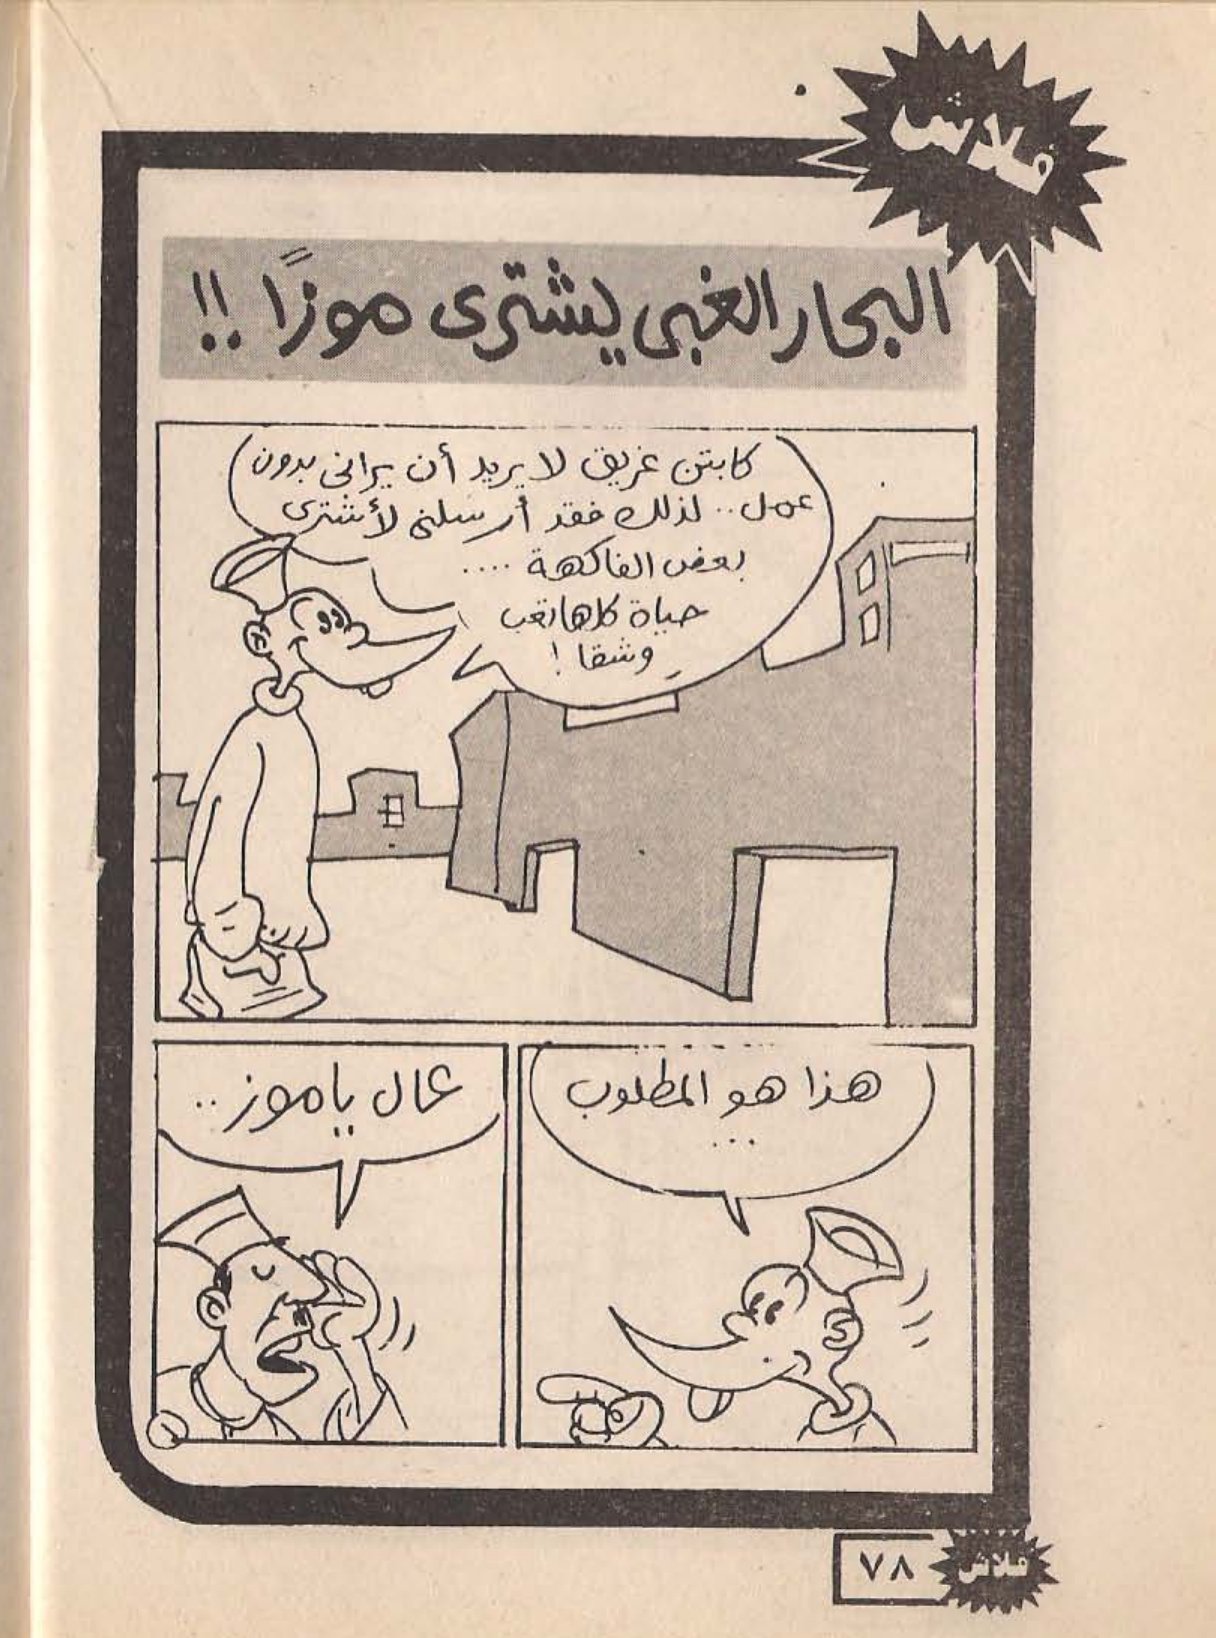 فلاش
البحار الغبى يشترى موزًا !!
كابتن غريق لا يريد أن يرانى بدون
عمل .. لذلك فقد أرسلنى لأشترى
بعض الفاكهة ....
حياة كلها تعب
وشقا !
هذا هو المطلوب
...
عال يا موز ..
٧٨
فلاش